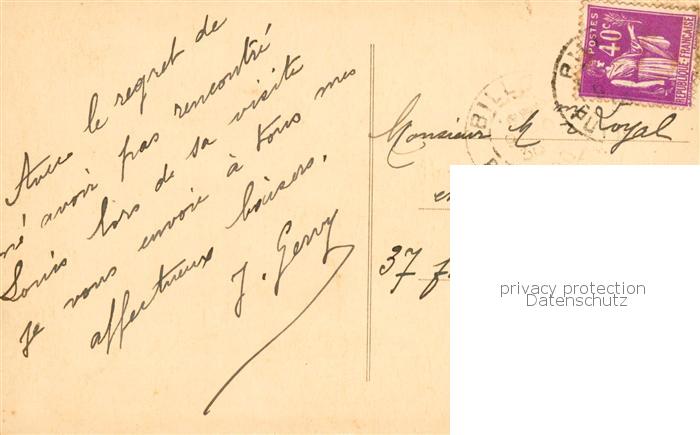 Avec le regret de
n'avoir pas rencontré
Louis lors de sa visite
je vous envoie à tous mes
affectueux baisers.
J. Gervy
POSTES
40c
REPUBLIQUE FRANÇAISE
BILL
Monsieur M Royal
37
privacy protection
Datenschutz